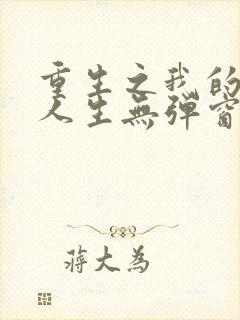 重生之我的
人生無弹窗
蒋大為